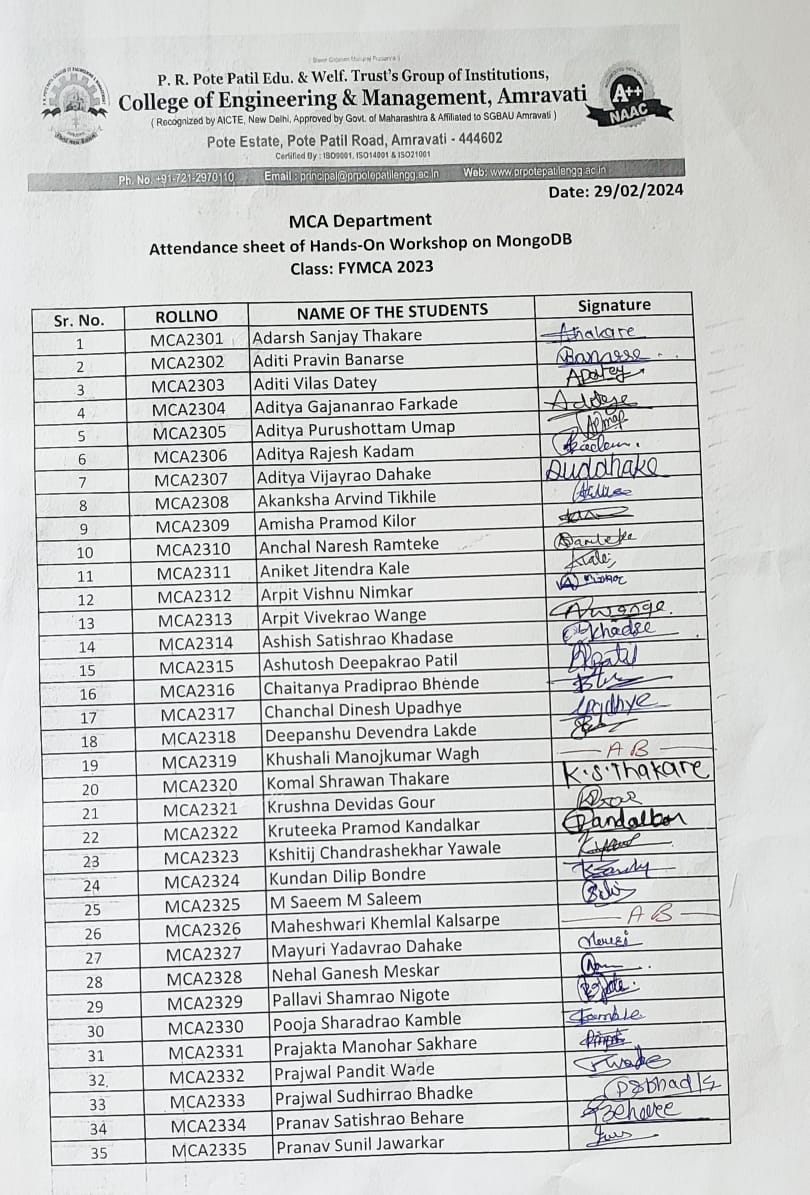 P. R. Pote Patil Edu. & Welf. Trust's Group of Institutions,
College of Engineering & Management, Amravati
( Recognized by AICTE, New Delhi, Approved by Govt. of Maharashtra & Affiliated to SGBAU Amravati )
Pote Estate, Pote Patil Road, Amravati - 444602
Certified By : ISO9001, ISO14001 & ISO21001
A++
NAAC
Ph. No. +91-721-2970110 Email : principal@prpotepatilengg.ac.in Web: www.prpotepatilengg.ac.in
Date: 29/02/2024
MCA Department
Attendance sheet of Hands-On Workshop on MongoDB
Class: FYMCA 2023
Sr. No. ROLLNO NAME OF THE STUDENTS Signature
1 MCA2301 Adarsh Sanjay Thakare Athakare
2 MCA2302 Aditi Pravin Banarse
3 MCA2303 Aditi Vilas Datey
4 MCA2304 Aditya Gajananrao Farkade
5 MCA2305 Aditya Purushottam Umap
6 MCA2306 Aditya Rajesh Kadam
7 MCA2307 Aditya Vijayrao Dahake
8 MCA2308 Akanksha Arvind Tikhile
9 MCA2309 Amisha Pramod Kilor
10 MCA2310 Anchal Naresh Ramteke
11 MCA2311 Aniket Jitendra Kale
12 MCA2312 Arpit Vishnu Nimkar
13 MCA2313 Arpit Vivekrao Wange
14 MCA2314 Ashish Satishrao Khadase
15 MCA2315 Ashutosh Deepakrao Patil
16 MCA2316 Chaitanya Pradiprao Bhende
17 MCA2317 Chanchal Dinesh Upadhye
18 MCA2318 Deepanshu Devendra Lakde
19 MCA2319 Khushali Manojkumar Wagh AB
20 MCA2320 Komal Shrawan Thakare K.S.Thakare
21 MCA2321 Krushna Devidas Gour
22 MCA2322 Kruteeka Pramod Kandalkar
23 MCA2323 Kshitij Chandrashekhar Yawale
24 MCA2324 Kundan Dilip Bondre
25 MCA2325 M Saeem M Saleem
26 MCA2326 Maheshwari Khemlal Kalsarpe AB
27 MCA2327 Mayuri Yadavrao Dahake
28 MCA2328 Nehal Ganesh Meskar
29 MCA2329 Pallavi Shamrao Nigote
30 MCA2330 Pooja Sharadrao Kamble
31 MCA2331 Prajakta Manohar Sakhare
32 MCA2332 Prajwal Pandit Wade
33 MCA2333 Prajwal Sudhirrao Bhadke
34 MCA2334 Pranav Satishrao Behare
35 MCA2335 Pranav Sunil Jawarkar